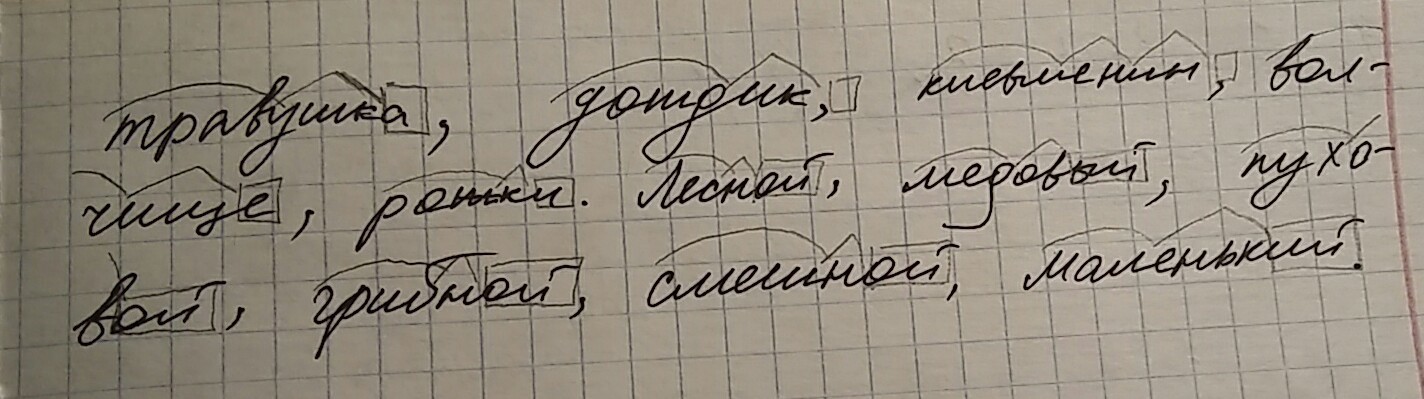 травушка, дождик, киевленин, вол-
чище, рожки. Лесной, медовый, пухо-
вой, грибной, смешной, маленький.